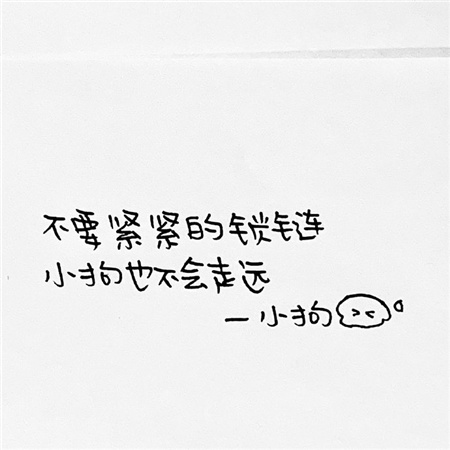 不要紧紧的锁链
小狗也不会走远
—小狗